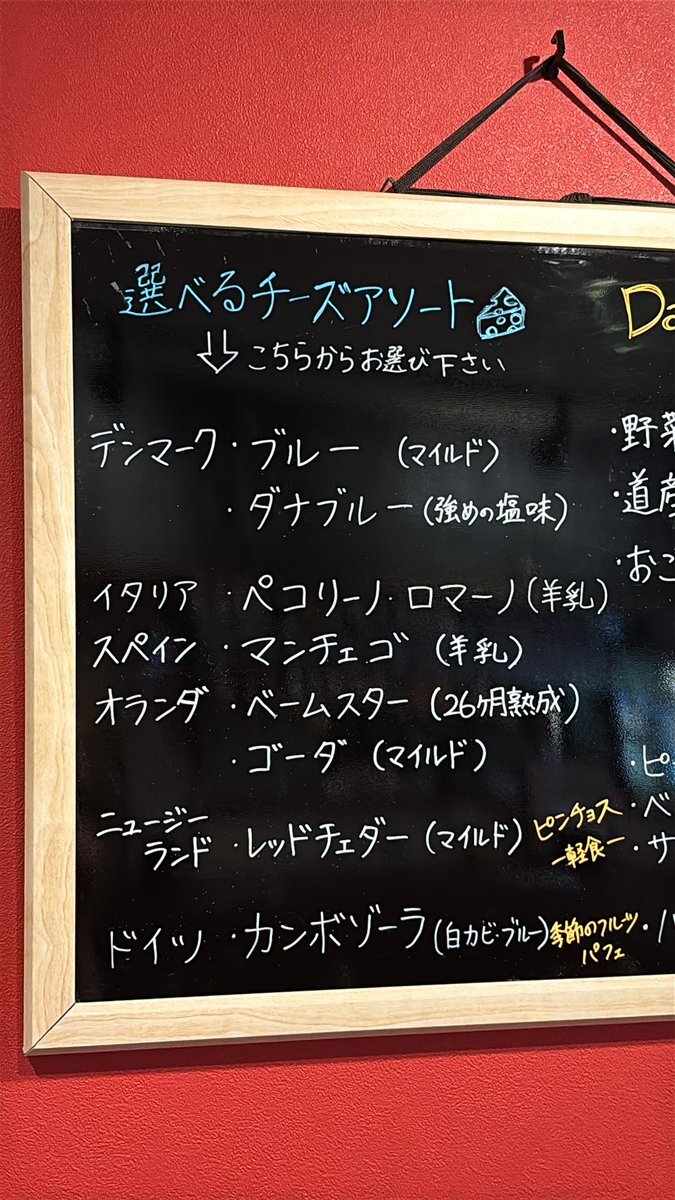 選べるチーズアソート
こちらからお選び下さい
デンマーク・ブルー (マイルド)
・ダナブルー (強めの塩味)
イタリア・ペコリーノ・ロマーノ (羊乳)
スペイン・マンチェゴ (羊乳)
オランダ・ベームスター (26ヶ月熟成)
・ゴーダ (マイルド)
ニュージー
ランド・レッドチェダー (マイルド)
ドイツ・カンボゾーラ (白カビ・ブルー)
Da
・野菜
・道産
・おこ
・ピ
ピンチョス・ベ
ー軽食ー・サ
季節のフルーツ
パフェ